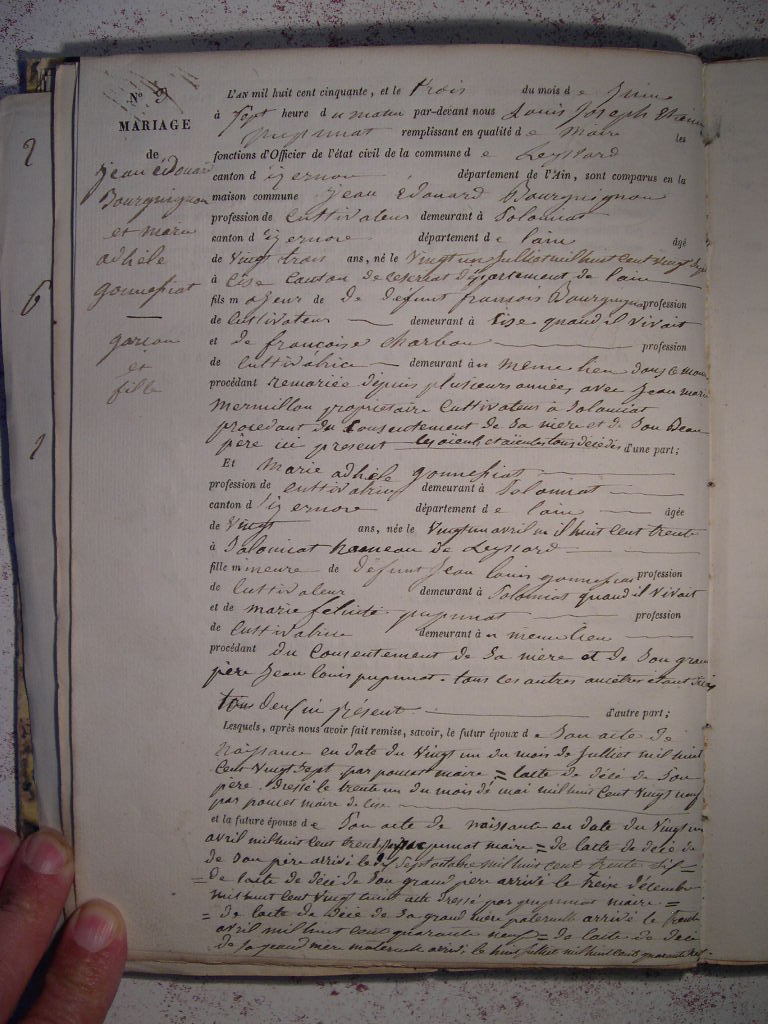 2
6
1
N° 9
MARIAGE
de
jean édouard
Bourguignon
et marie
adhèle
gonnessiat
garcon
et
fille
L'AN mil huit cent cinquante, et le trois du mois de Juin
à Sept heure du matin par-devant nous Louis Joseph
pupunat remplissant en qualité de Maire les
fonctions d'Officier de l'état civil de la commune de Leyssard
canton d'izernore département de l'Ain, sont comparus en la
maison commune jean Edouard Bourguignon
profession de Cultivateur demeurant à Solomiat
canton d'izernore département de l'ain âgé
de Vingt trois ans, né le Vingt un Julliet mil huit Cent Vingt Sept
à Cise Canton de Ceserat département de l'ain
fils majeur de de défunt françois Bourguignon profession
de Cultivateur demeurant à Cise quand il Vivait
et de françoise Charbon profession
de Cultivatrice demeurant au meme lieu
procédant remariée depuis plusieurs années, avec Jean marie
Mermillon propriétaire Cultivateur à Solomiat
procédant du Consentement de Sa mère et de Son Beau
père ici present les aieuls et aieules tous décédés d'une part;
Et Marie adhèle gonnessiat
profession de cultivatrice demeurant à Solomiat
canton d'izernore département de l'ain âgée
de Vingt ans, née le Vingt un avril mil huit Cent trente
à Solomiat hameau de Leyssard
fille mineure de défunt Jean Louis gonnessiat profession
de Cultivateur demeurant à Solomiat quand il Vivait
et de marie felicité pupunat profession
de Cultivatrice demeurant au meme Lieu
procédant du Consentement de Sa mère et de Son grand
père Jean Louis pupunat. tous les autres ancètres étant
tous deux ici présent d'autre part;
Lesquels, après nous avoir fait remise, savoir, le futur époux de Son acte de
Naissance en date du Vingt un du mois de Julliet mil huit
Cent Vingt Sept par poncet maire = l'acte de décé de Son
père. Dressé le trente un du mois de mai mil huit Cent Vingt neuf
par poncet maire de Cise
et la future épouse de Son acte de naissance en date du Vingt un
avril mil huit Cent trente par pupunat maire = de l'acte de décé de
de Son père arrivé le Sept octobre mil huit Cent trente
= de l'acte de décé de Son grand père arrivé le treize décembre
mil huit Cent Vingt huit acte dressé par pupunat maire =
= de l'acte de décé de Sa grand mère paternelle arrivé le trente
avril mil huit Cent quarante neuf = de l'acte de décé
de Sa grand mère maternelle arrivé le huit julliet mil huit Cent quarante